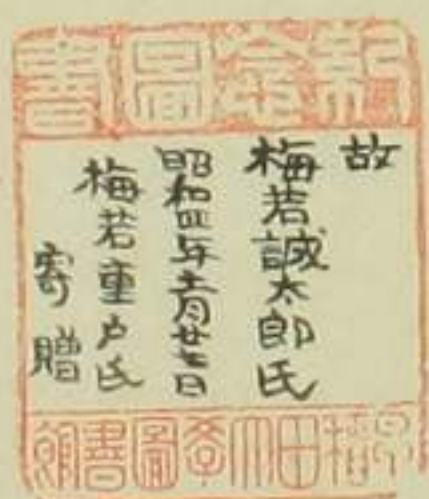 紀念圖書
故
梅若誠太郎氏
昭和四年 月廿七日
梅若重戸氏
寄贈
早稻田大學圖書館